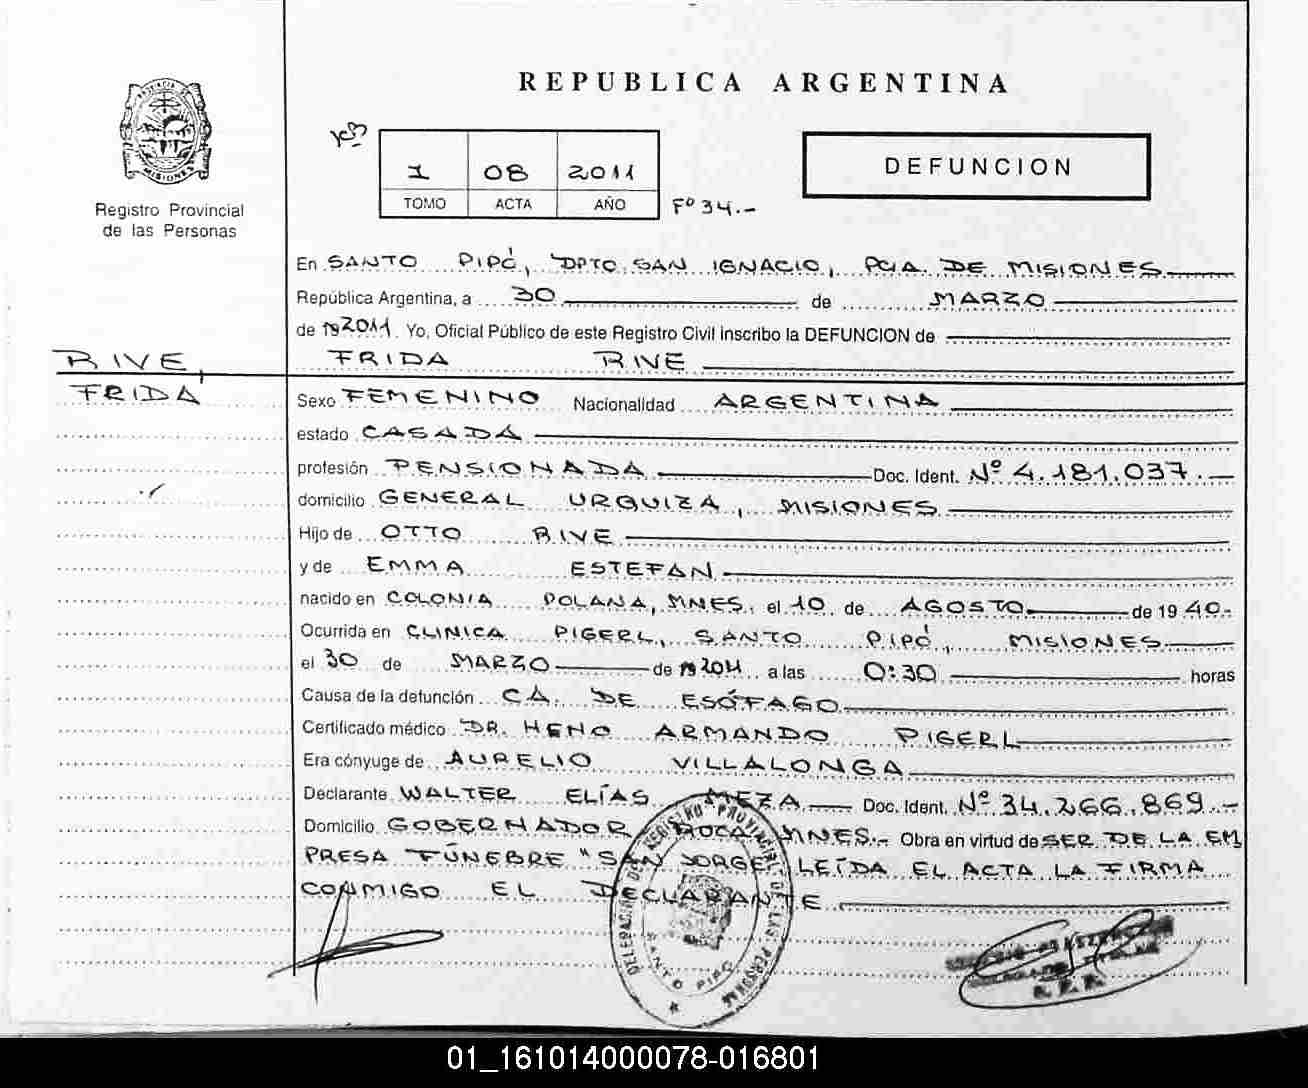 REPUBLICA ARGENTINA
PROVINCIA DE
MISIONES
Registro Provincial
de las Personas
1 08 2011
TOMO ACTA AÑO
Fº 34.-
DEFUNCION
En SANTO PIPÓ, DPTO. SAN IGNACIO, PCIA. DE MISIONES
República Argentina, a 30 de MARZO
de 19 2011. Yo, Oficial Público de este Registro Civil inscribo la DEFUNCION de
RIVE,
FRIDA RIVE
FRIDA
Sexo FEMENINO Nacionalidad ARGENTINA
estado CASADA
profesión PENSIONADA Doc. Ident. Nº 4.181.037.-
domicilio GENERAL URQUIZA, MISIONES
Hijo de OTTO RIVE
y de EMMA ESTEFAN
nacido en COLONIA POLANA, MNES. el 10 de AGOSTO de 19 40.-
Ocurrida en CLINICA PIGERL, SANTO PIPÓ, MISIONES
el 30 de MARZO de 19 2011 a las 0:30 horas
Causa de la defunción CA. DE ESÓFAGO
Certificado médico DR. HENO ARMANDO PIGERL
Era cónyuge de AURELIO VILLALONGA
Declarante WALTER ELÍAS MEZA Doc. Ident. Nº 34.266.869.-
Domicilio GOBERNADOR ROCA, MNES.- Obra en virtud de SER DE LA EM
PRESA FÚNEBRE "SAN JORGE" LEÍDA EL ACTA LA FIRMA
CONMIGO EL DECLARANTE
DELEGACION DEL REGISTRO PROVINCIAL DE LAS PERSONAS
SANTO PIPO
01_161014000078-016801